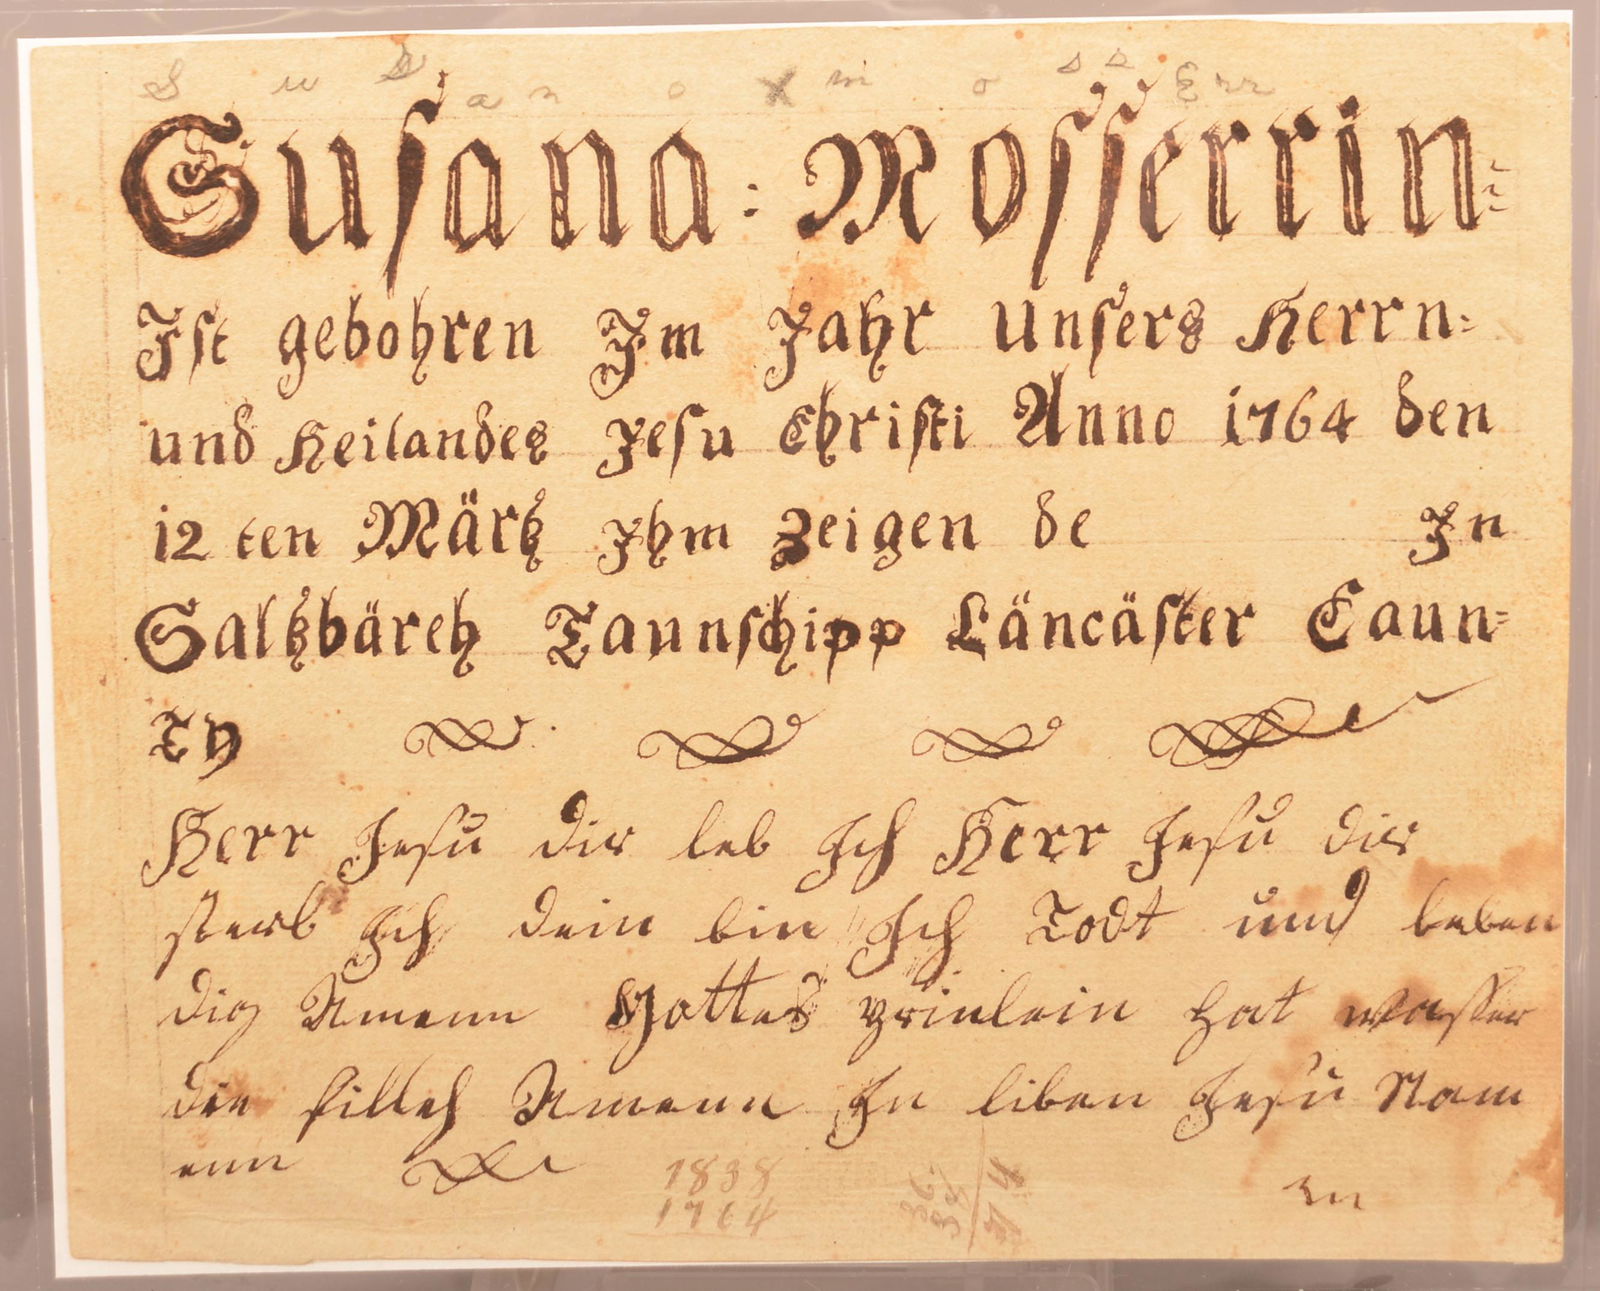 S u s a n a m o s s Err
Susana: Mosserrin:
Ist gebohren Im Jahr unsers Herrn:
und Heilandes Jesu Christi Anno 1764 den
12 ten Märtz Ihm Zeigen de In
Saltzbäreh Taunschipp Läncäster Caun=
Ty
Herr Jesu dir leb Ich Herr Jesu dir
sterb Ich dein bin Ich Todt und leben
dig Amenn Gottes brinlein hat wasser
die filleh Amenn In liben Jesu Nam
enn
1838
1764
en